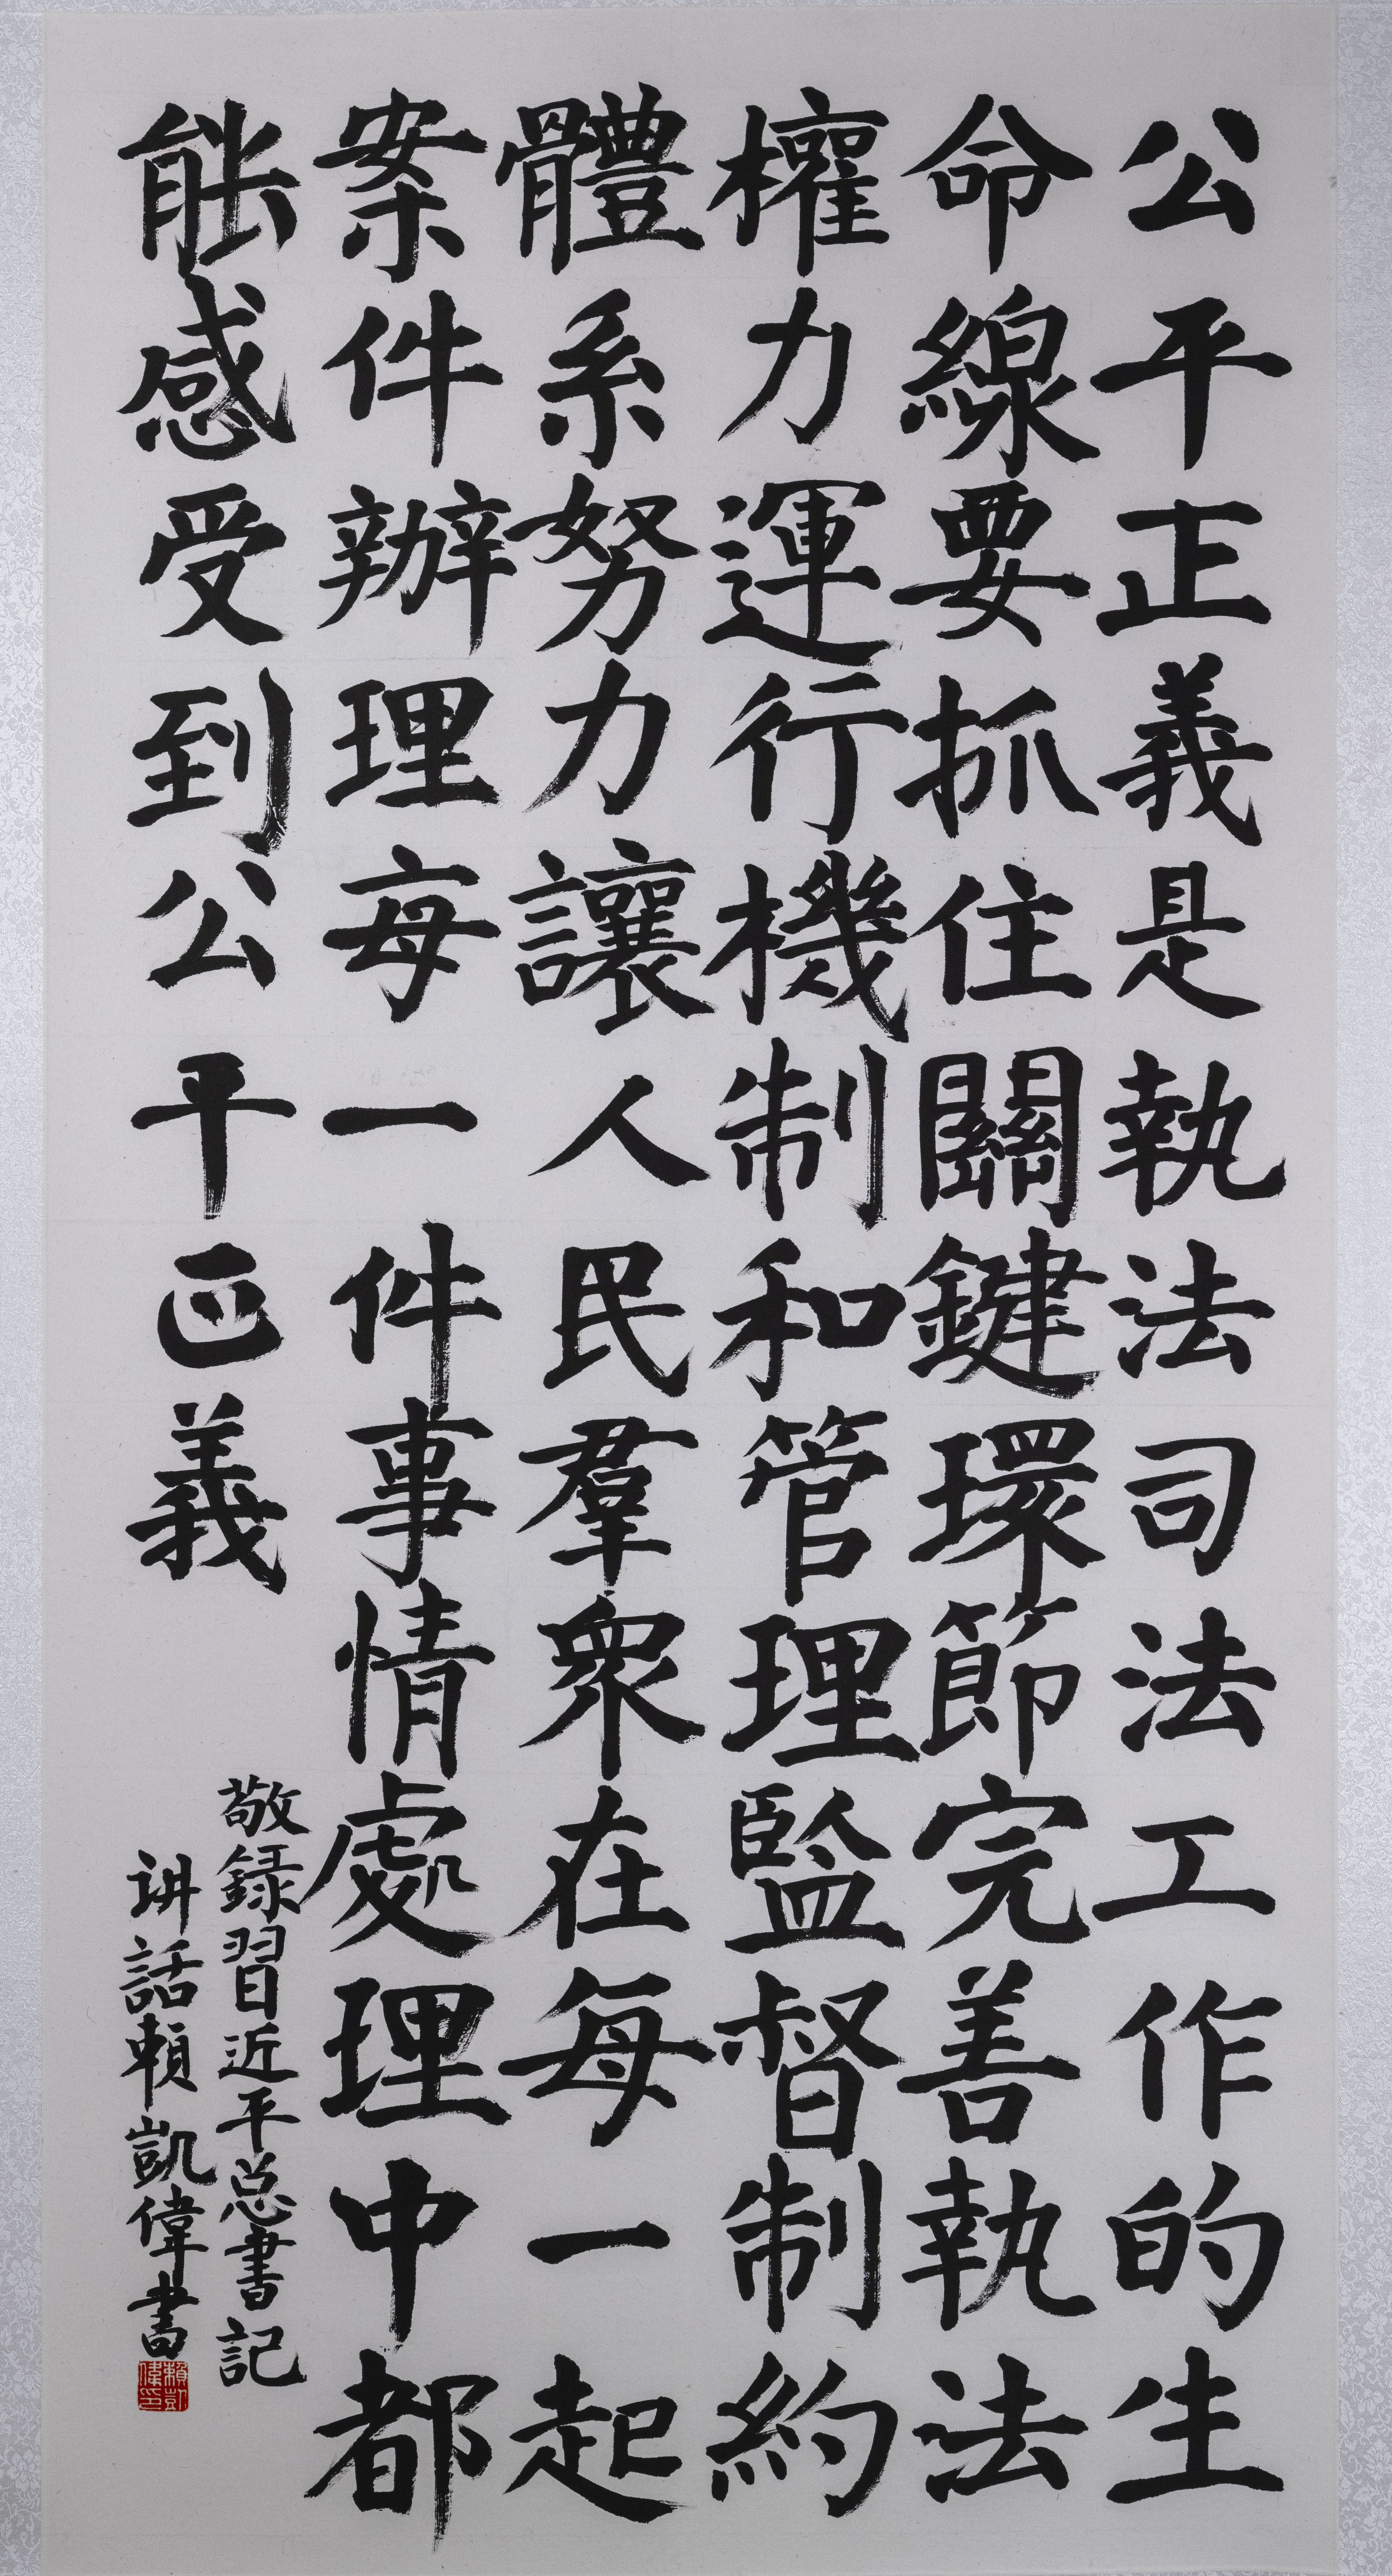 公平正義是執法司法工作的生
命線要抓住關鍵環節完善執法
權力運行機制和管理監督制約
體系努力讓人民羣衆在每一起
案件辦理每一件事情處理中都
能感受到公平正義
敬録習近平总書記
讲話賴凱偉書
賴凱偉印